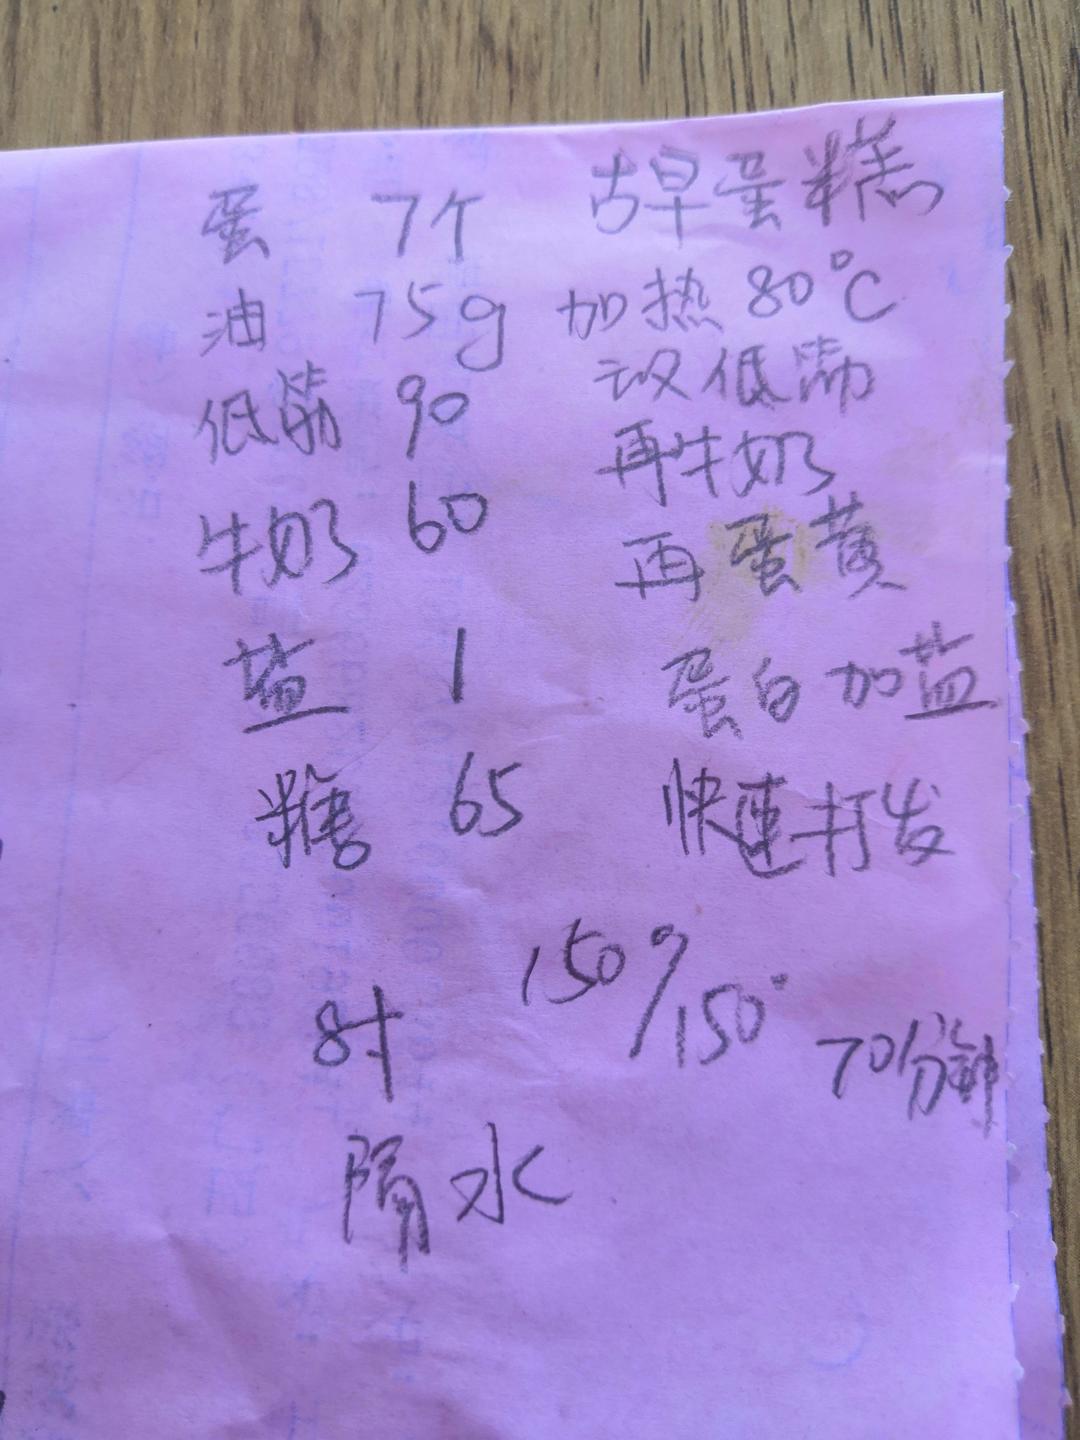 古早蛋糕
蛋 7个
油 75g 加热80°C
低筋 90 低筋
再牛奶
牛奶 60 再蛋黄
盐 1 蛋白加盐
糖 65 快速打发
150g/150°
8寸 70分钟
隔水